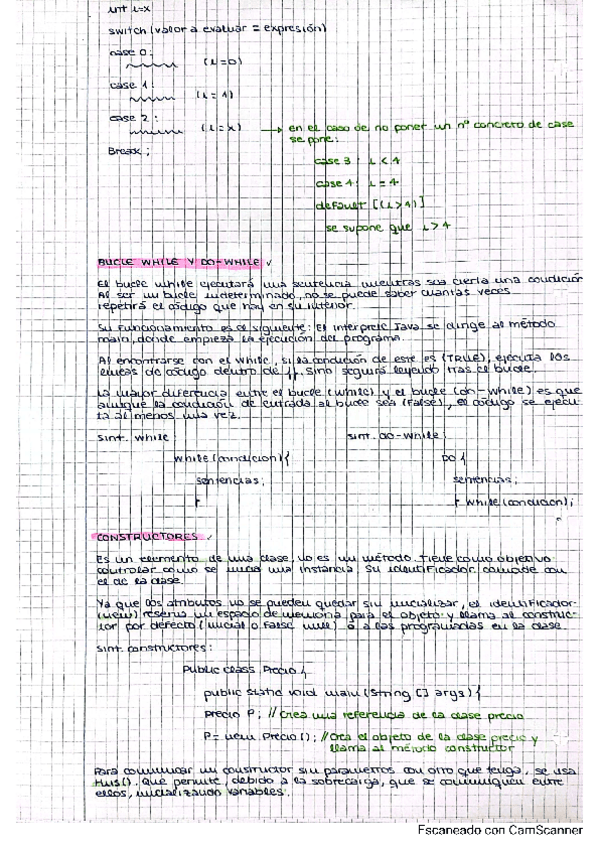 int i=x
switch (valor a evaluar = expresión)
case 0:
(i=0)
case 1:
(i=1)
case 2:
(i=x) → en el caso de no poner un nº concreto de case
se pone:
Break;
case 3: i<4
case 4: i=4
default [(i>4)]
se supone que i>4
BUCLE WHILE Y DO-WHILE ✓
El bucle while ejecutará una sentencia mientras sea cierta una condición
Al ser un bucle indeterminado, no se puede saber cuantas veces
repetirá el código que hay en su interior.
Su funcionamiento es el siguiente: El interprete Java se dirige al método
main, donde empieza la ejecución del programa.
Al encontrarse con el while, si la condición de este es (TRUE), ejecuta los
lineas de código dentro de {}, sino seguirá leyendo tras el bucle.
La mayor diferencia entre el bucle (while) y el bucle (do-while) es que
aunque la condición de entrada al bucle sea (false), el código se ejecu-
ta al menos una vez.
sint. while: sint. do-while:
while (condicion) { Do {
sentencias; sentencias;
} } while (condicion);
CONSTRUCTORES ✓
Es un elemento de una clase, no es un método. Tiene como objetivo
controlar como se inicia una instancia. Su identificador coincide con
el de la clase.
Ya que los atributos no se pueden quedar sin inicializar, el identificador
(new) reserva un espacio de memoria para el objeto y llama al construc-
tor por defecto (inicial o false null) o a los programados en la clase.
sint. constructores:
Public class Precio {
public static void main (String [] args) {
Precio P; // Crea una referencia de la clase precio
P = new Precio(); // Crea el objeto de la clase precio y
llama al método constructor
Para comunicar un constructor sin parametros con otro que tenga, se usa
this(). Que permite, debido a la sobrecarga, que se comuniquen entre
ellos, inicializando variables.
Escaneado con CamScanner